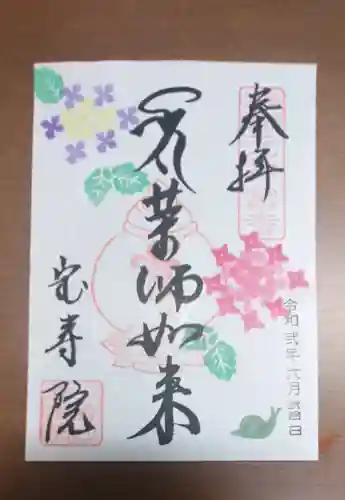 奉拝
令和弐年六月
日
薬師如来
宝寿院